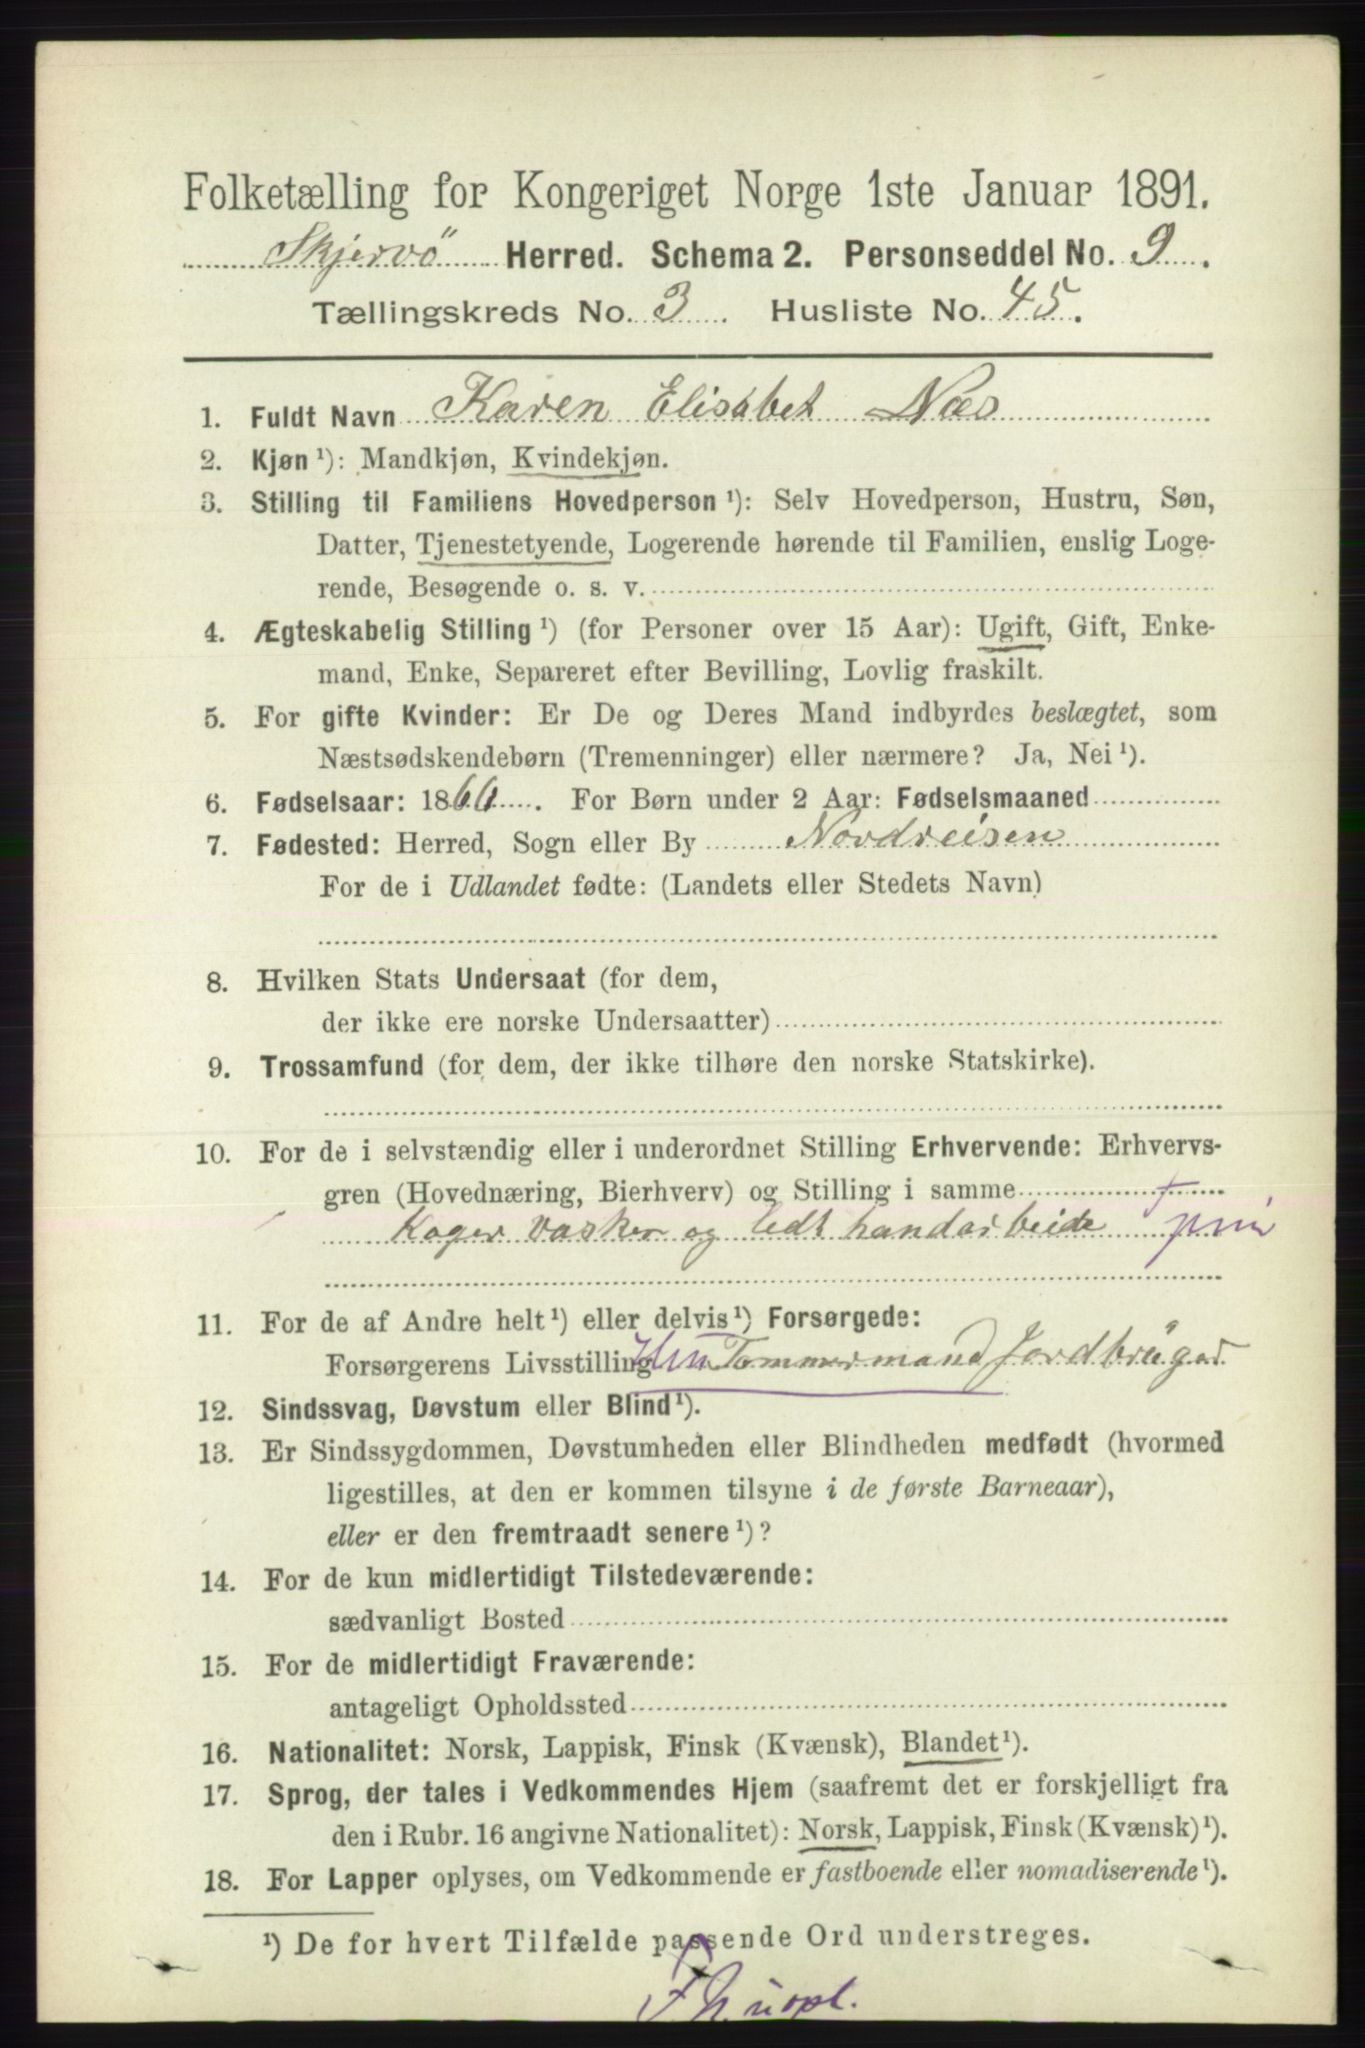 Folketælling for Kongeriget Norge 1ste Januar 1891.
Skjervö Herred. Schema 2. Personseddel No. 9.
Tællingskreds No. 3. Husliste No. 45.
1. Fuldt Navn Karen Elisabet Næs
2. Kjøn ¹): Mandkjøn, Kvindekjøn.
3. Stilling til Familiens Hovedperson ¹): Selv Hovedperson, Hustru, Søn,
Datter, Tjenestetyende, Logerende hørende til Familien, enslig Loge-
rende, Besøgende o. s. v.
4. Ægteskabelig Stilling ¹) (for Personer over 15 Aar): Ugift, Gift, Enke-
mand, Enke, Separeret efter Bevilling, Lovlig fraskilt.
5. For gifte Kvinder: Er De og Deres Mand indbyrdes beslægtet, som
Næstsødskendebørn (Tremenninger) eller nærmere? Ja, Nei ¹).
6. Fødselsaar: 1866. For Børn under 2 Aar: Fødselsmaaned
7. Fødested: Herred, Sogn eller By Nordreisen
For de i Udlandet fødte: (Landets eller Stedets Navn)
8. Hvilken Stats Undersaat (for dem,
der ikke ere norske Undersaatter)
9. Trossamfund (for dem, der ikke tilhøre den norske Statskirke).
10. For de i selvstændig eller i underordnet Stilling Erhvervende: Erhvervs-
gren (Hovednæring, Bierhverv) og Stilling i samme
Koger vasker og ledt handarbeide
11. For de af Andre helt ¹) eller delvis ¹) Forsørgede:
Forsørgerens Livsstilling Tømmermand Jordbrüger
12. Sindssvag, Døvstum eller Blind ¹).
13. Er Sindssygdommen, Døvstumheden eller Blindheden medfødt (hvormed
ligestilles, at den er kommen tilsyne i de første Barneaar),
eller er den fremtraadt senere ¹)?
14. For de kun midlertidigt Tilstedeværende:
sædvanligt Bosted
15. For de midlertidigt Fraværende:
antageligt Opholdssted
16. Nationalitet: Norsk, Lappisk, Finsk (Kvænsk), Blandet ¹).
17. Sprog, der tales i Vedkommendes Hjem (saafremt det er forskjelligt fra
den i Rubr. 16 angivne Nationalitet): Norsk, Lappisk, Finsk (Kvænsk) ¹).
18. For Lapper oplyses, om Vedkommende er fastboende eller nomadiserende ¹).
¹) De for hvert Tilfælde passende Ord understreges.